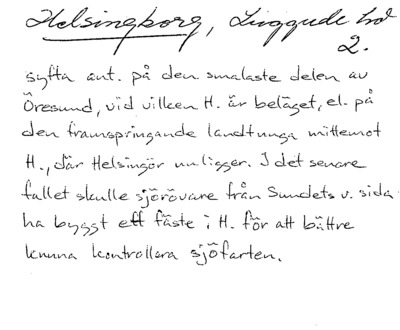 Helsingborg, Luggude hd
2.
syfta ant. på den smalaste delen av
Öresund, vid vilken H. är beläget, el. på
den framspringande landtunga mittemot
H., där Helsingör nu ligger. I det senare
fallet skulle sjörövare från Sundets v. sida
ha byggt ett fäste i H. för att bättre
kunna kontrollera sjöfarten.